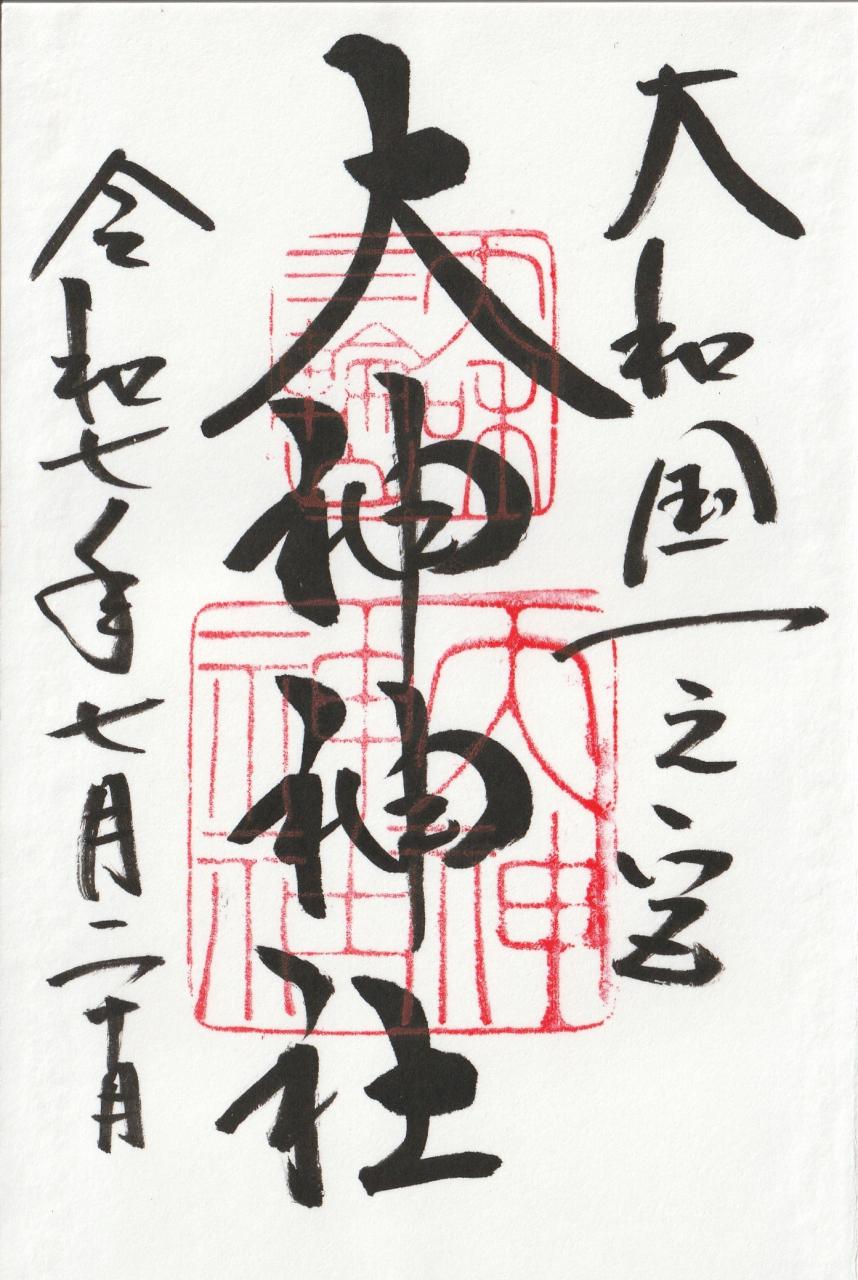 大和国一之宮
大神神社
令和七年七月二十日
大和
三輪
大神
神社